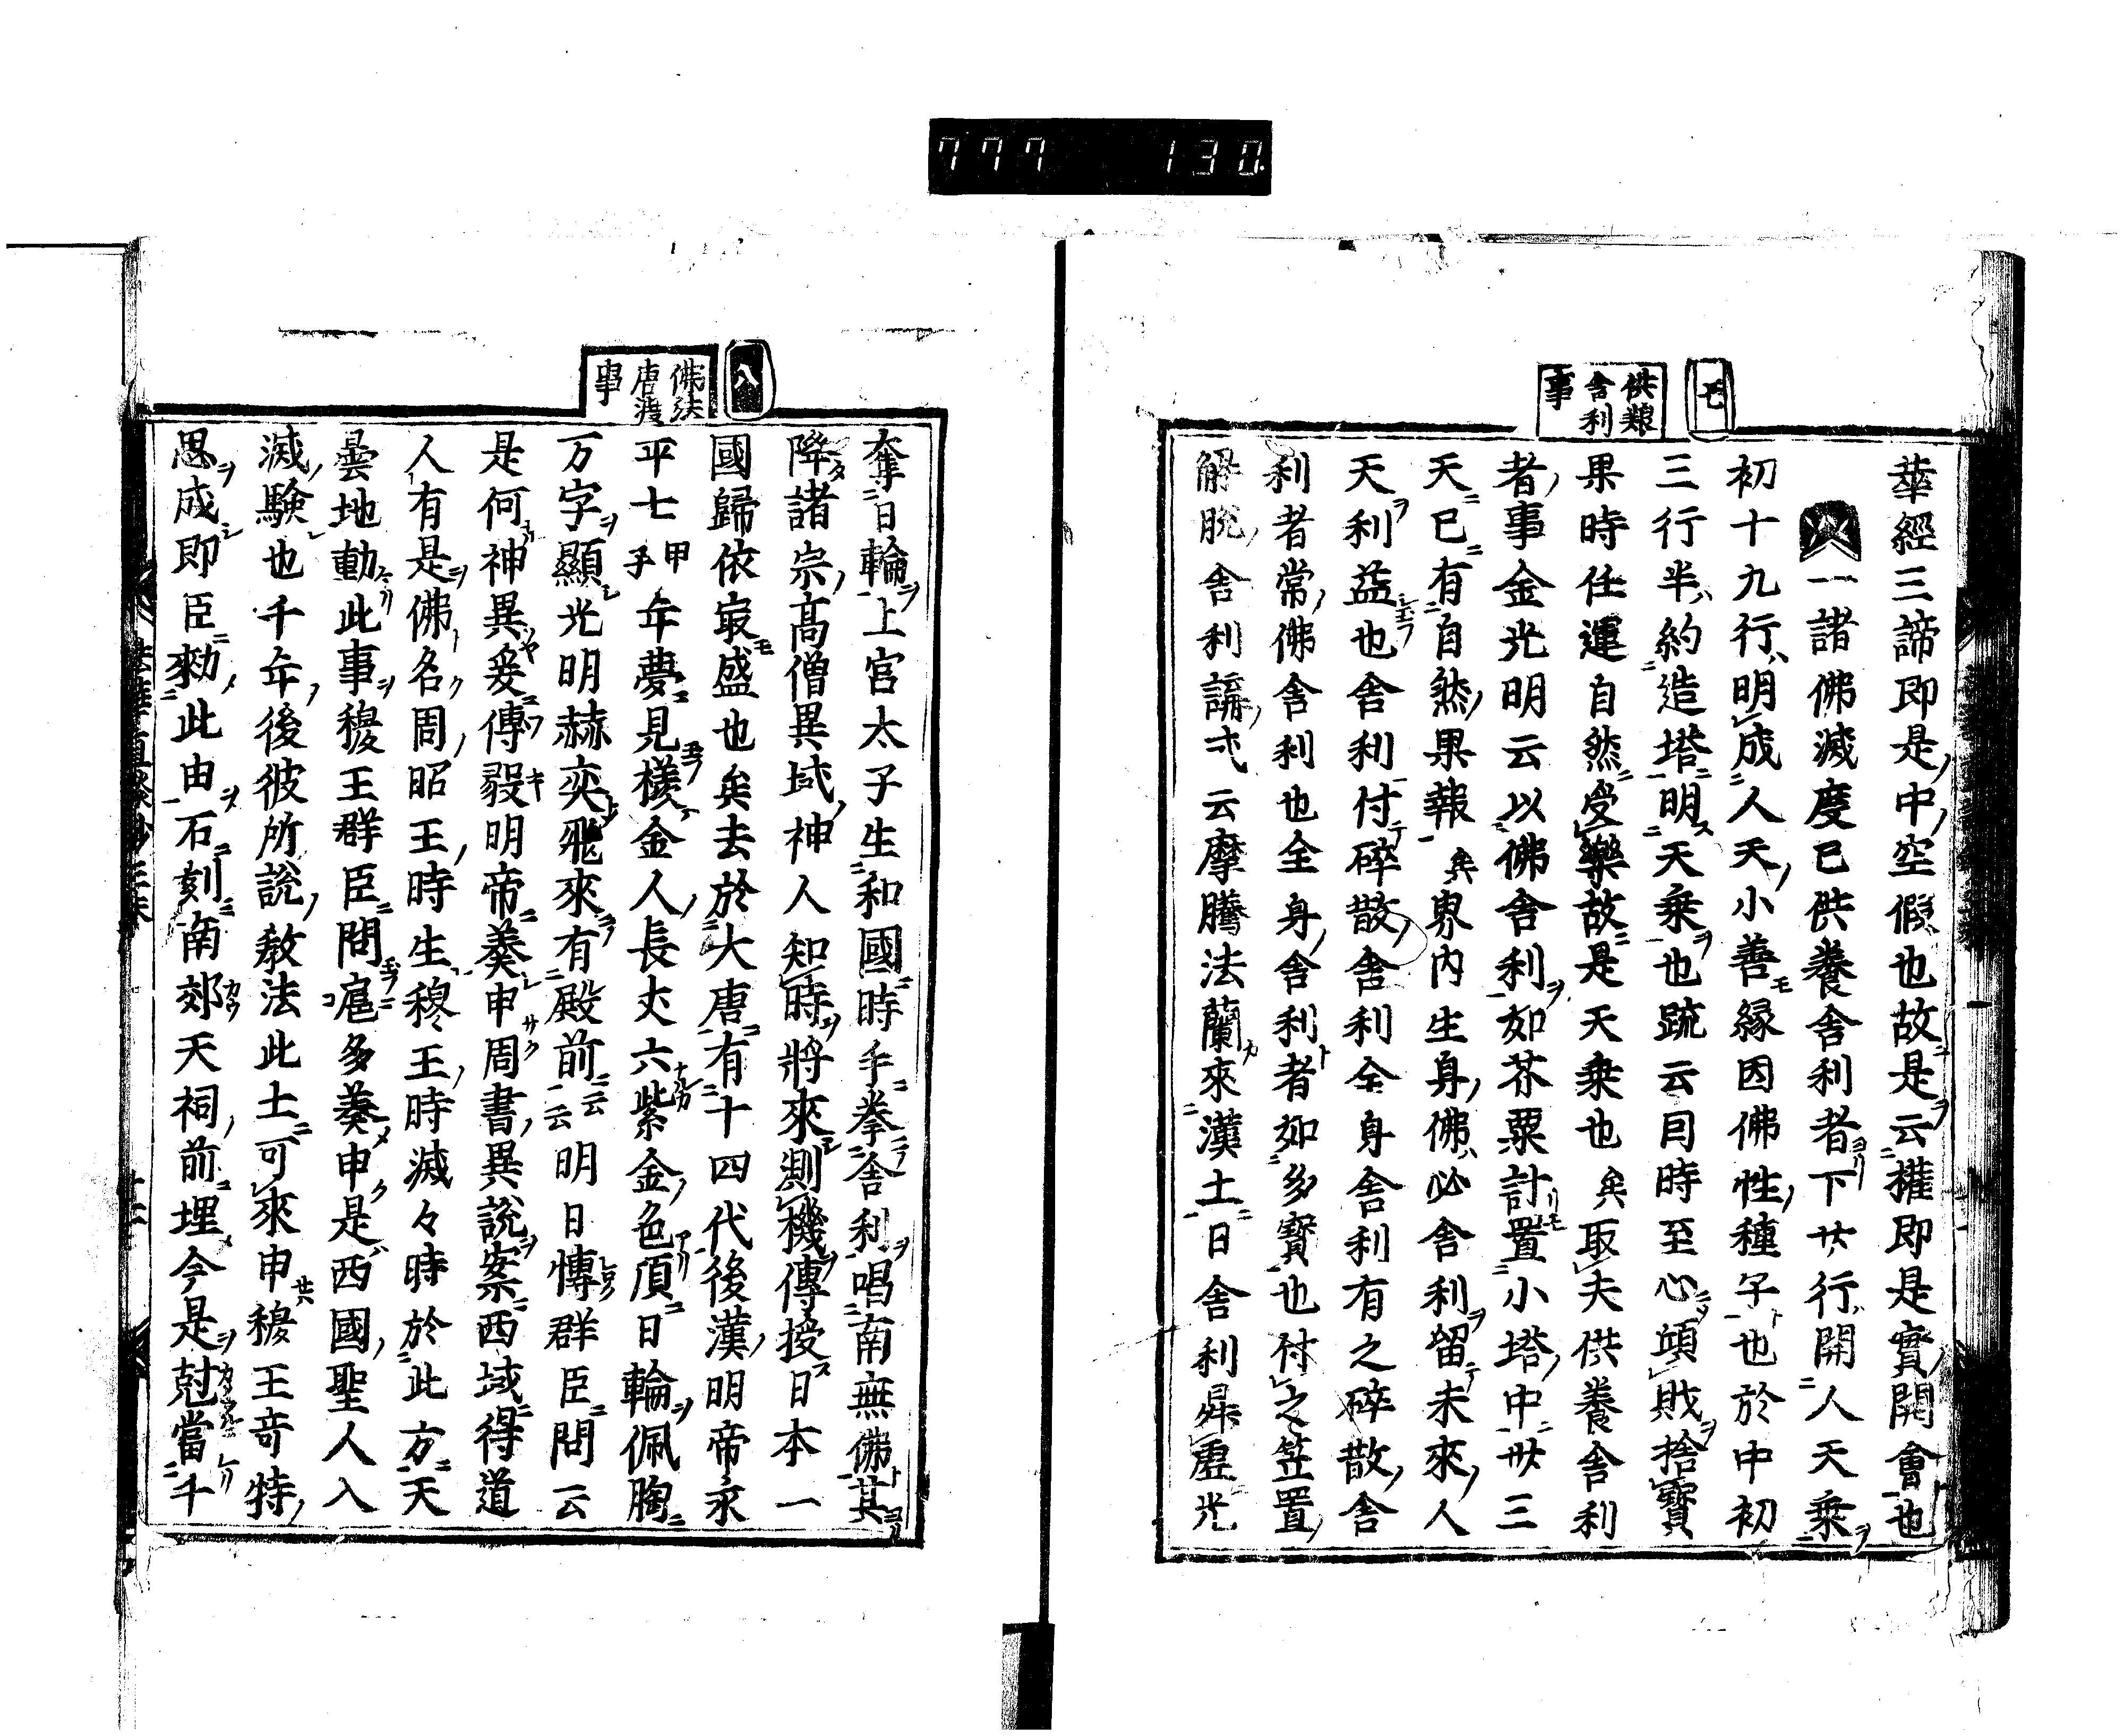 777 130
七
供養舍利事
華經三諦即是中空假也故是云權即是實開會也
一諸佛滅度已供養舍利者下廿行開人天乘
初十九行明成人天小善緣因佛性種子也於中初
三行半約造塔明天乘也疏云同時至心傾財捨寶
果時任運自然受樂故是天乘也矣取夫供養舍利
者事金光明云以佛舍利如芥粟計置小塔中卅三
天已有自然果報矣界内生身佛必舍利留未來人
天利益也舍利付碎散舍利全身舍利有之碎散舍
利者常佛舍利也全身舍利者如多寶也付之笠置
解脫舍利講式云摩騰法蘭來漢土日舍利昇虛光
八
佛法唐渡事
奪日輪上宮太子生和國時手拳舍利唱南無佛其
降諸宗高僧異域神人知時將來測機傳授日本一
國歸依最盛也矣去於大唐有十四代後漢明帝永
平七甲子年夢見樣金人長丈六紫金色頂日輪佩胸
万字顯光明赫奕飛來有殿前云云明日博群臣問云
是何神異妾傳毅明帝奏申周書異説案西域得道
人有是佛名周昭王時生穆王時滅々時於此方天
曇地動此事穆王群臣問扈多奏申是西國聖人入
滅驗也千年後彼所説教法此土可來申穆王奇特
思成即臣勑此由石刻南郊天祠前埋今是尅當千